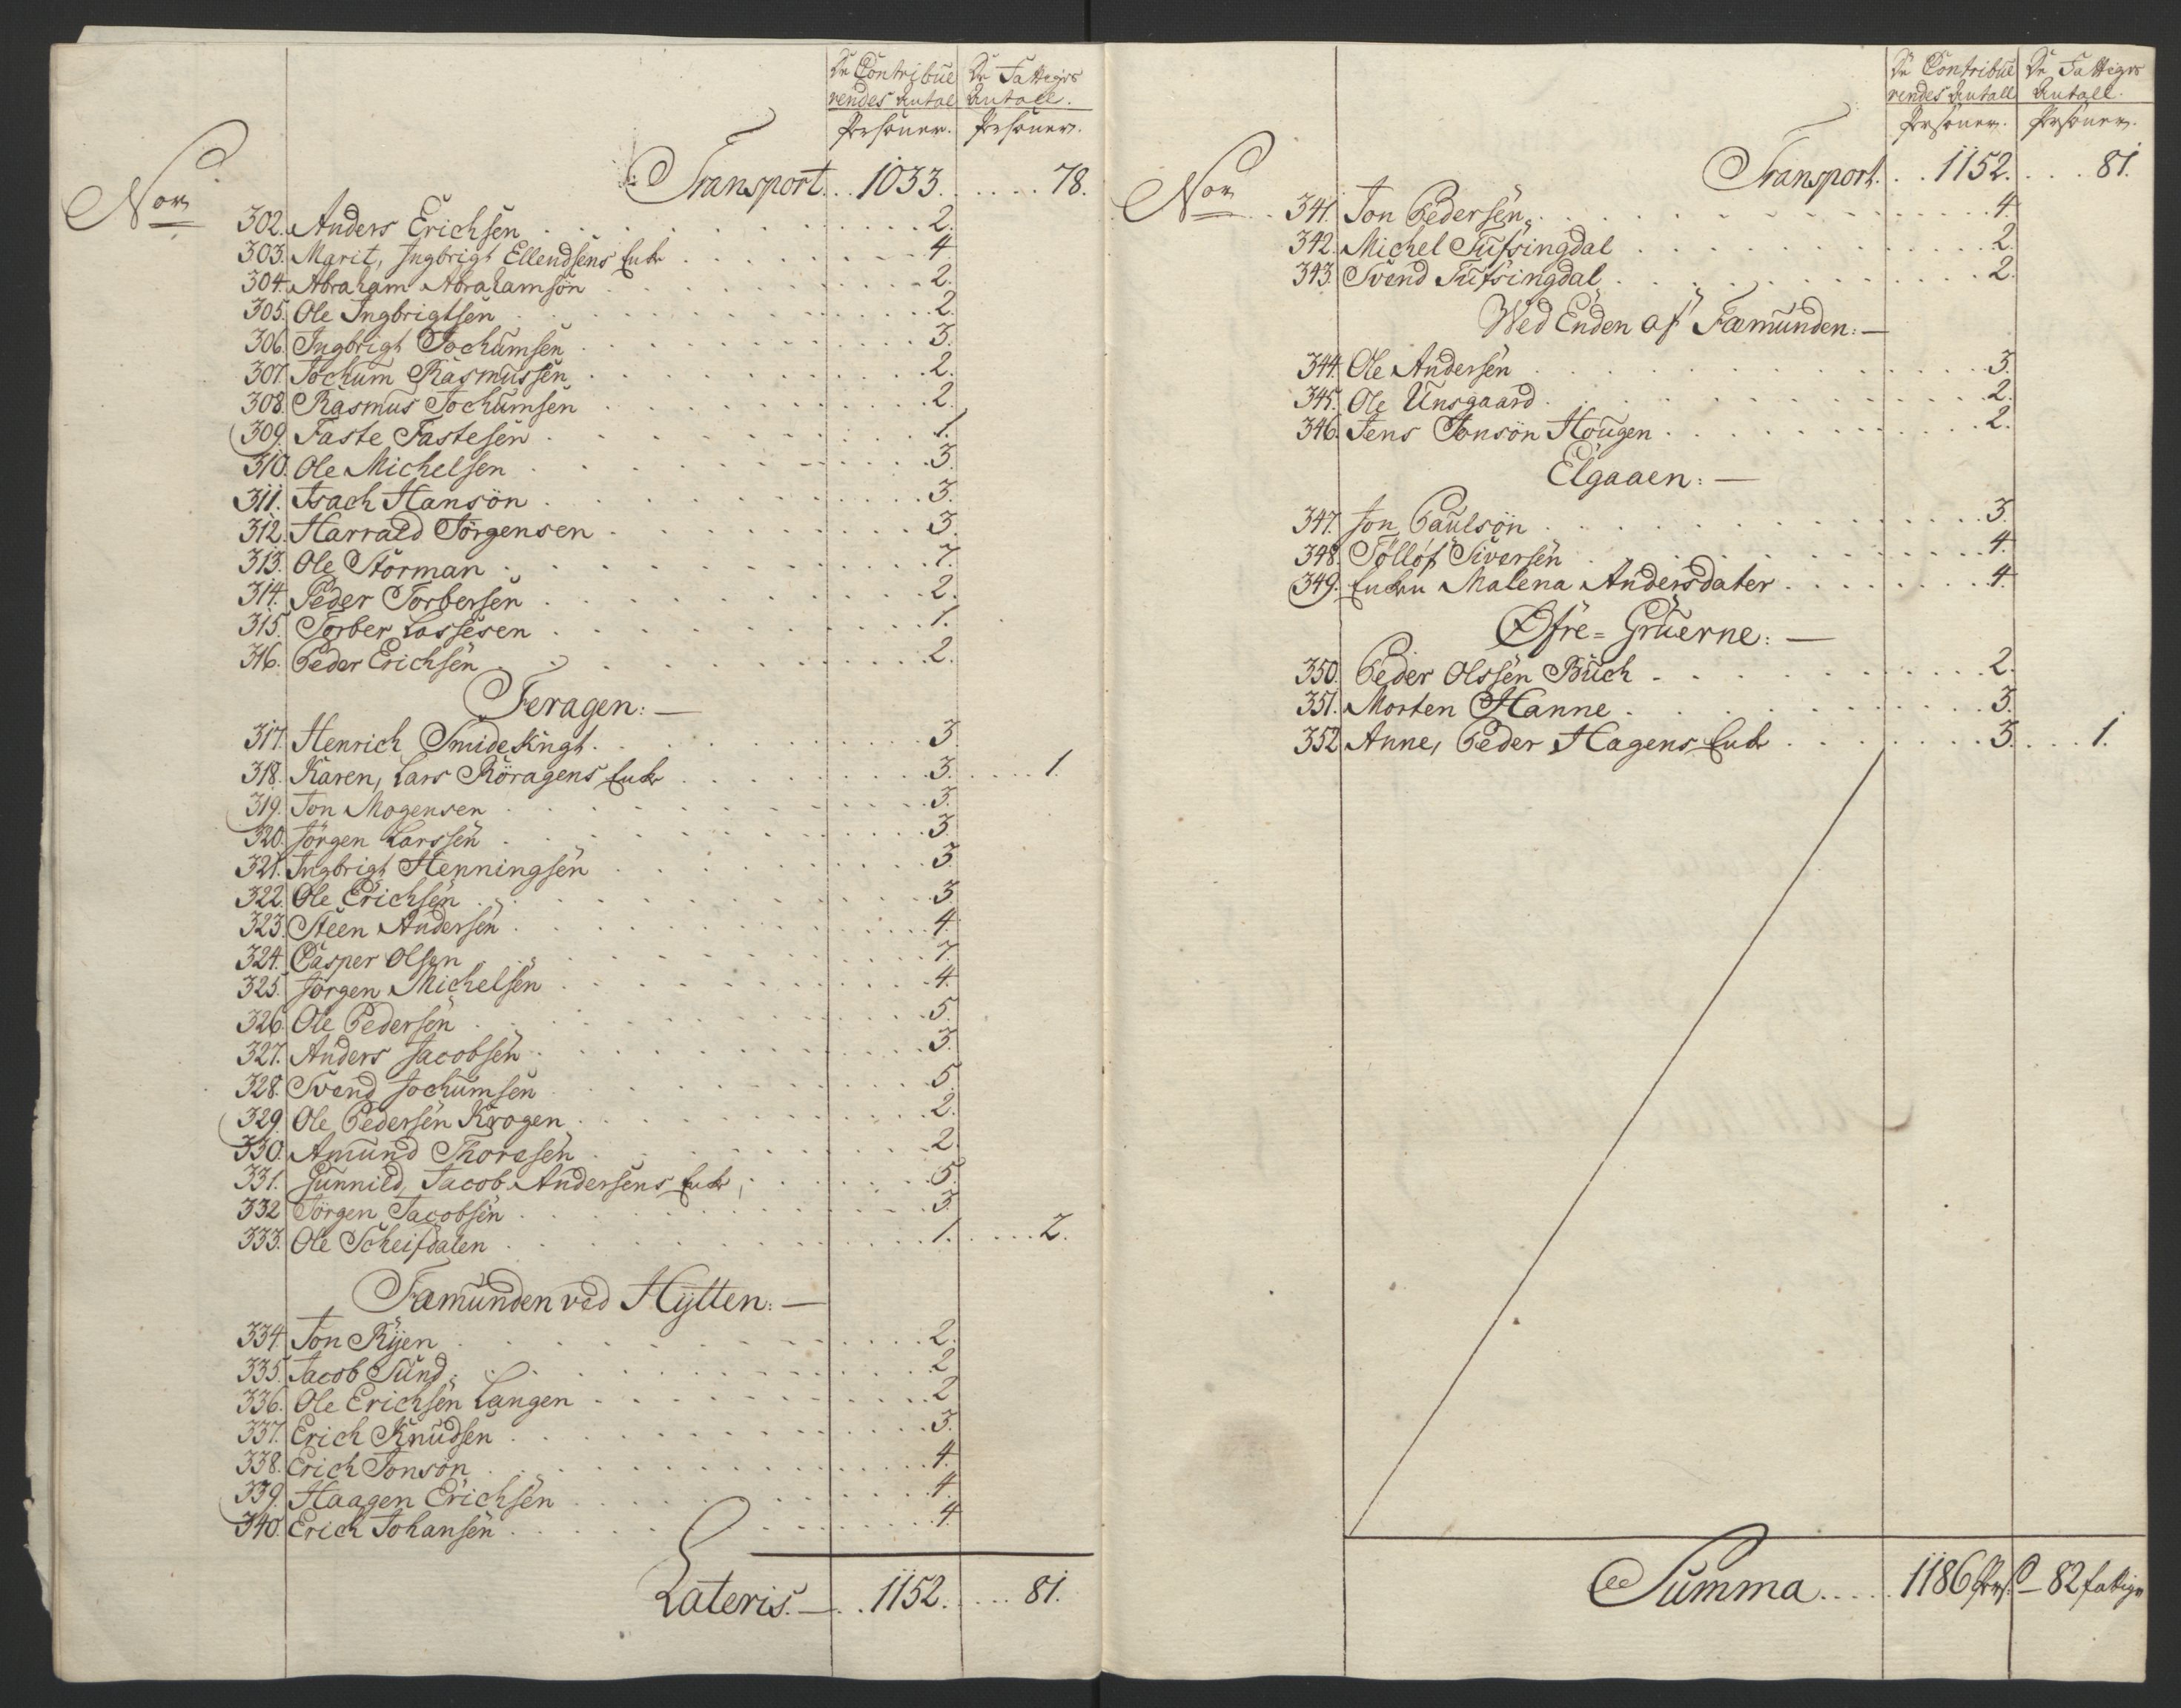 De Contribue De Fattiges
rendes Antal Antall.
Persaner. Persaner.
Transport. . . 1033. . . . . . 78.
No
302. Anders Erichsen . . . 2.
303. Marit, Ingbrigt Ellendsens Enke . . . 4
304. Abraham Abrahamsøn . . . 2.
305. Ole Ingbrigtsen . . . 2.
306. Ingbrigt Jochumsen . . . 3.
307. Jochum Rasmussen . . . 2.
308. Rasmus Jochumsen . . . 2.
309. Faste Fastesen . . . 1.
310. Ole Michelsen . . . 3.
311. Isach Hansøn . . . 3.
312. Harrald Jørgensen . . . 3.
313. Ole Storman . . . 7.
314. Peder Torbersen . . . 2.
315. Torber Lassesen . . . 1.
316. Peder Erichsen . . . 2.
Feragen: —
317. Henrich Smideknegt . . . 3.
318. Karen, Lars Røragens Enke . . . 3. . . . . 1.
319. Jon Mogensen . . . 3.
320. Jørgen Larssen . . . 3.
321. Ingbrigt Henningsen . . . 3.
322. Ole Erichsen . . . 3.
323. Steen Andersen . . . 4.
324. Casper Olsen . . . 7.
325. Jørgen Michelsen . . . 4.
326. Ole Pedersen . . . 5.
327. Anders Jacobsen . . . 3.
328. Svend Jochumsen . . . 5.
329. Ole Pedersen Krogen . . . 2.
330. Amund Thoresen . . . 2.
331. Gunnild, Jacob Andersens Enke, . . . 5.
332 Jørgen Jacobsen . . . 3.
333. Ole Scheifdalen . . . 1. . . . . . 2.
Fæmunden ved Hytten: —
334. Jon Ryen . . . 2.
335. Jacob Sund . . . 2
336. Ole Erichsen Langen . . . 2
337. Erich Knudsen . . . 3.
338. Erich Jonsøn . . . 4.
339. Haagen Erichsen . . . 4.
340. Erich Johansen . . . 4
Lateris. — . . 1152. . . . . 81.
De Contribue De Fattiges
rendes Antall Antall.
Persaner. Persaner.
Transport. . . 1152. . . . 81.
No
341. Jon Pedersen . . . 4.
342. Michel Tufsingdal . . . 2.
343. Svend Tufsingdal . . . 2.
Wed Enden af Fæmunden: —
344. Ole Andersen . . . 3.
345. Ole Unsgaard . . . 2.
346. Jens Jonsøn Hougen . . . 2.
Elgaaen: —
347. Jon Paulsøn . . . 3.
348. Tølløf Siversen . . . 4.
349. Enken Malena Andersdater . . . 4.
Øfre= Gruerne: —
350. Peder Olssen Buch . . . 2.
351. Morten Hanne . . . 3.
352 Anne, Peder Hagens Enke . . . 3. . . . 1.
Summa . . . . 1186 Pers. — 82 fattige